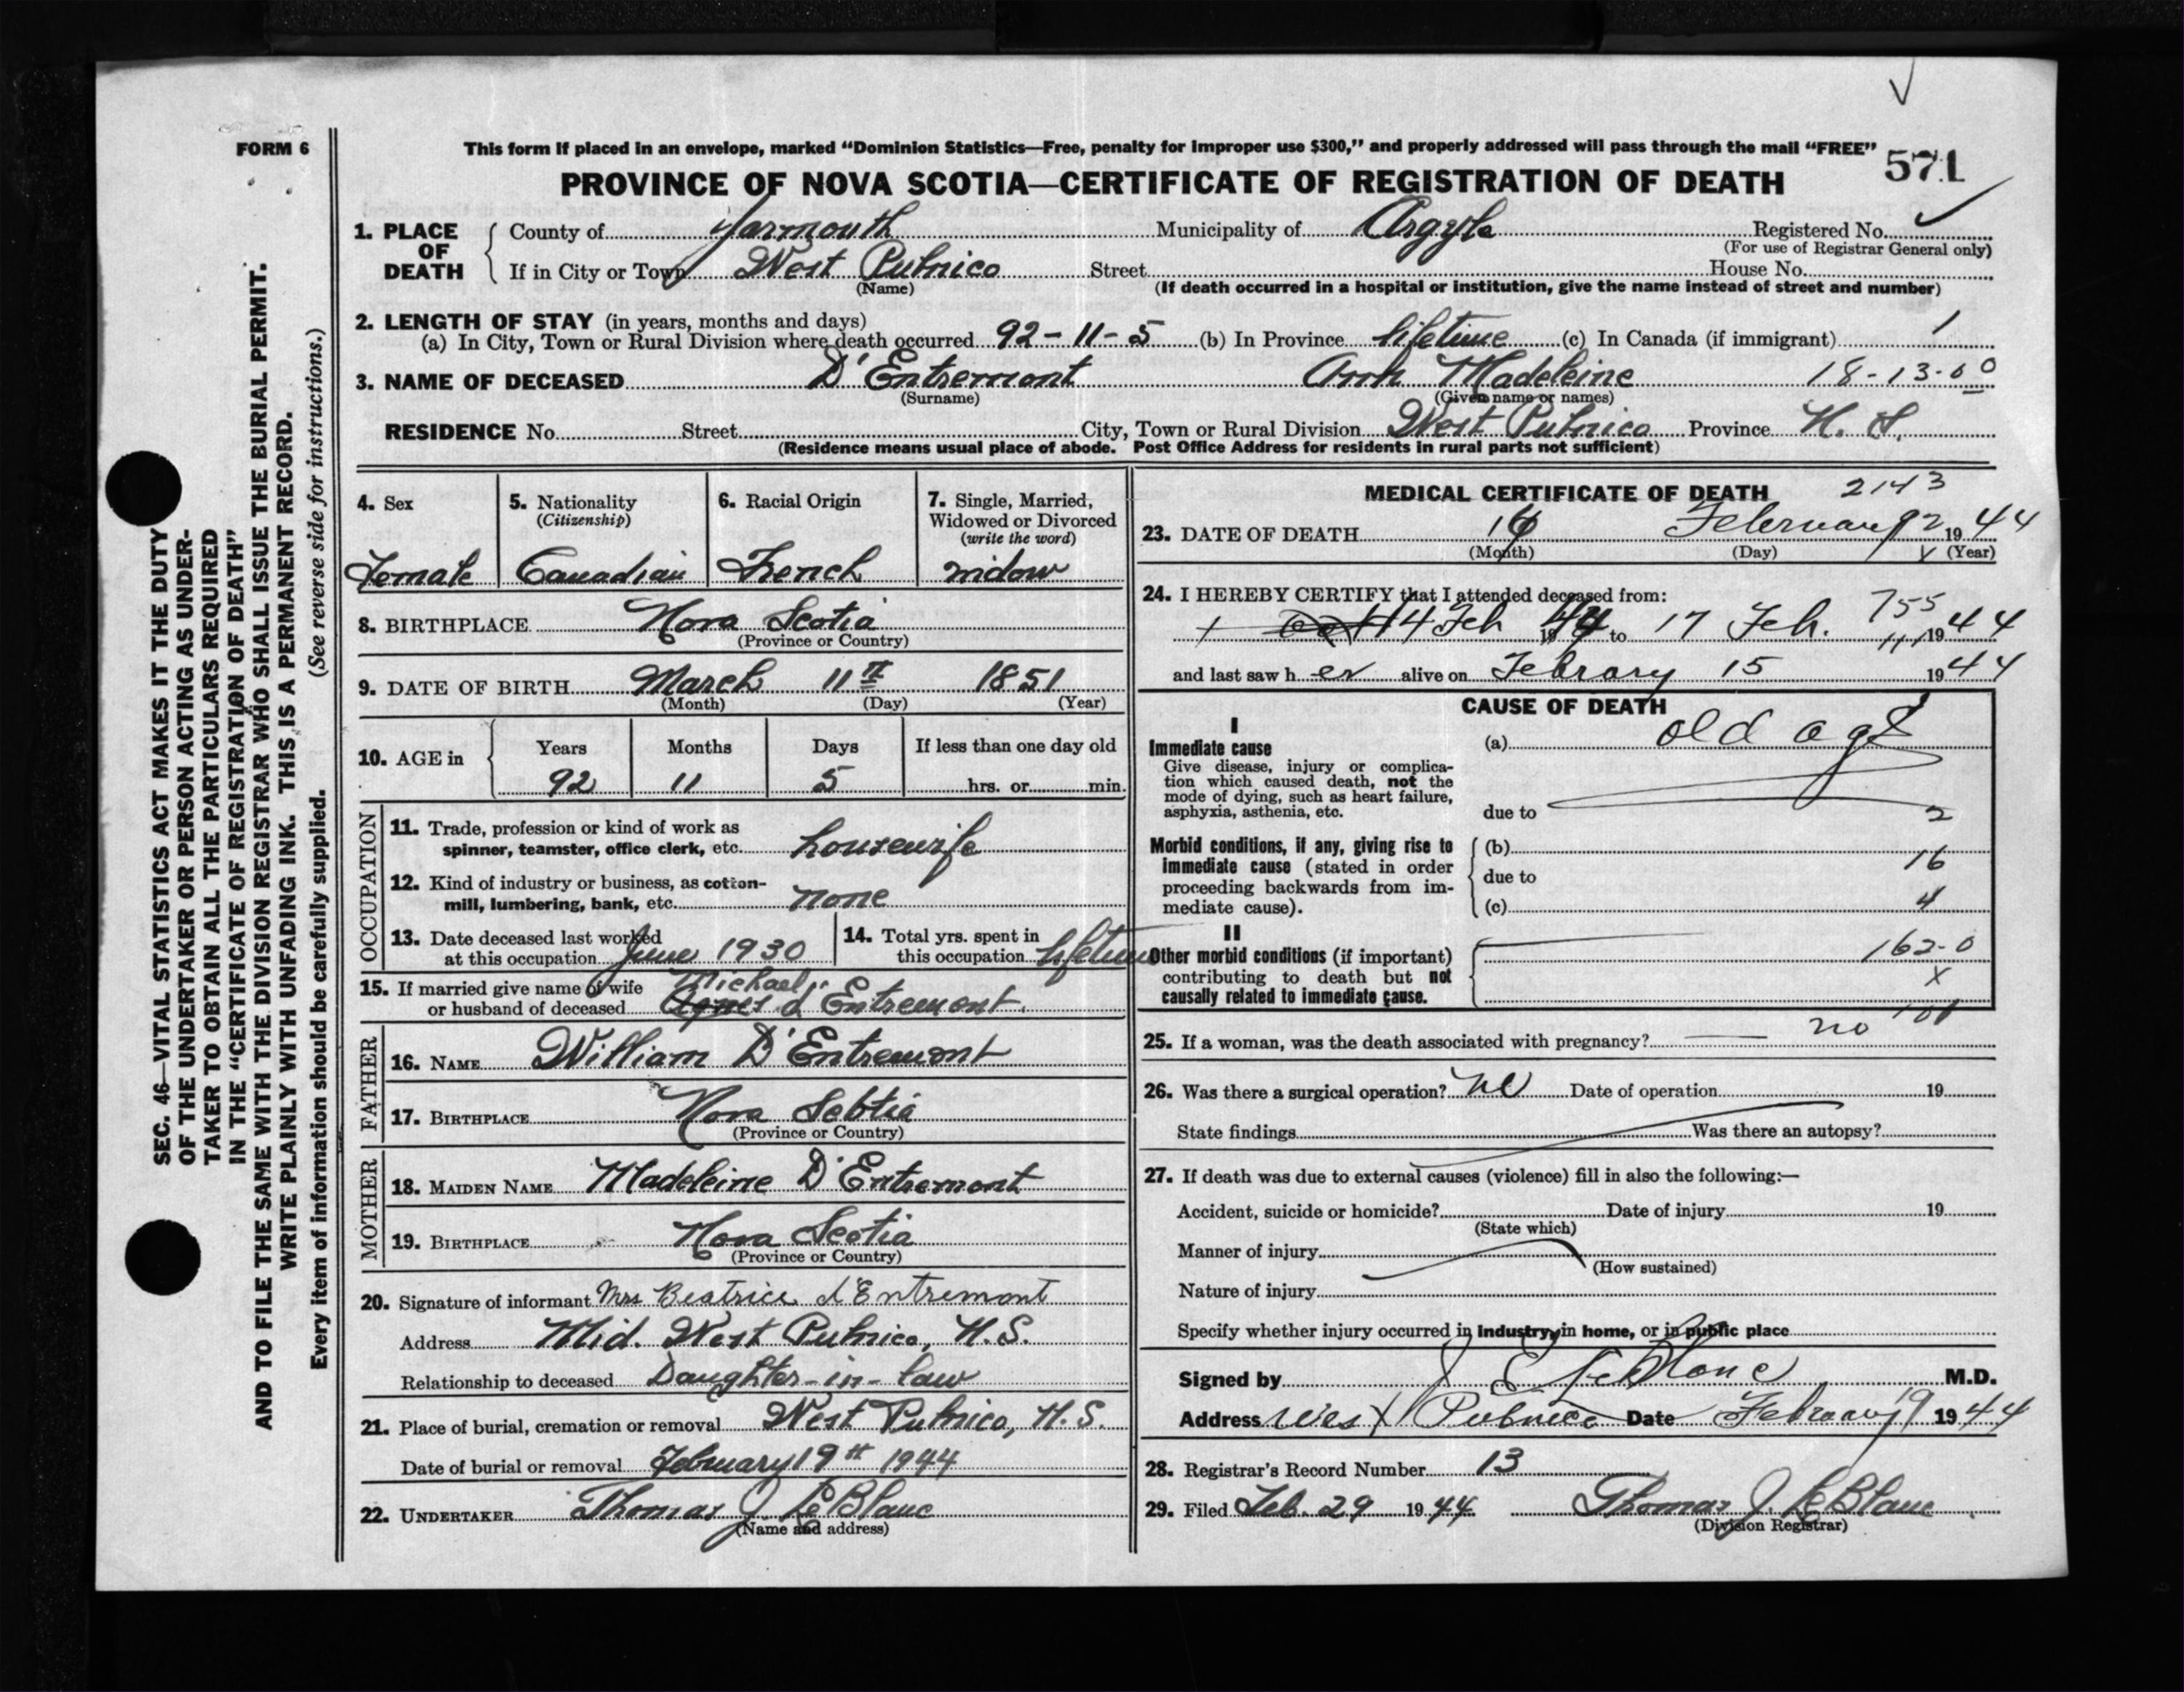 FORM 6
This form if placed in an envelope, marked “Dominion Statistics—Free, penalty for improper use $300,” and properly addressed will pass through the mail “FREE”
571
PROVINCE OF NOVA SCOTIA—CERTIFICATE OF REGISTRATION OF DEATH
1. PLACE OF DEATH
County of Yarmouth Municipality of Argyle Registered No.
(For use of Registrar General only)
If in City or Town West Pubnico Street House No.
(Name) (If death occurred in a hospital or institution, give the name instead of street and number)
2. LENGTH OF STAY (in years, months and days)
(a) In City, Town or Rural Division where death occurred 92-11-5 (b) In Province lifetime (c) In Canada (if immigrant) /
3. NAME OF DECEASED D'Entremont Ann Madeleine 18-13-00
(Surname) (Given name or names)
RESIDENCE No. Street City, Town or Rural Division West Pubnico Province N. S.
(Residence means usual place of abode. Post Office Address for residents in rural parts not sufficient)
4. Sex
Female
5. Nationality
(Citizenship)
Canadian
6. Racial Origin
French
7. Single, Married,
Widowed or Divorced
(write the word)
widow
8. BIRTHPLACE Nova Scotia
(Province or Country)
9. DATE OF BIRTH March 11th 1851
(Month) (Day) (Year)
10. AGE in
Years Months Days If less than one day old
92 11 5 hrs. or min.
OCCUPATION
11. Trade, profession or kind of work as
spinner, teamster, office clerk, etc. housewife
12. Kind of industry or business, as cotton-
mill, lumbering, bank, etc. none
13. Date deceased last worked
at this occupation June 1930
14. Total yrs. spent in
this occupation lifetime
15. If married give name of wife Michael
or husband of deceased Agnes d'Entremont.
FATHER
16. NAME William D'Entremont
17. BIRTHPLACE Nova Scotia
(Province or Country)
MOTHER
18. MAIDEN NAME Madeleine D'Entremont
19. BIRTHPLACE Nova Scotia
(Province or Country)
20. Signature of informant Mrs Beatrice d'Entremont
Address Mid. West Pubnico, N.S.
Relationship to deceased Daughter-in-law
21. Place of burial, cremation or removal West Pubnico, N.S.
Date of burial or removal February 19th 1944
22. UNDERTAKER Thomas J. LeBlanc
(Name and address)
MEDICAL CERTIFICATE OF DEATH 2143
23. DATE OF DEATH February 1944
(Month) (Day) (Year)
24. I HEREBY CERTIFY that I attended deceased from:
755
14 Feb 1944 to 17 Feb. 1944
and last saw her alive on Febrary 15 1944
CAUSE OF DEATH
I
Immediate cause
Give disease, injury or complica-
tion which caused death, not the
mode of dying, such as heart failure,
asphyxia, asthenia, etc.
(a) old age
due to 2
Morbid conditions, if any, giving rise to
immediate cause (stated in order
proceeding backwards from im-
mediate cause).
(b) 16
due to
(c) 4
II
Other morbid conditions (if important)
contributing to death but not
causally related to immediate cause.
162-0
X
25. If a woman, was the death associated with pregnancy? no
26. Was there a surgical operation? no Date of operation 19
State findings Was there an autopsy?
27. If death was due to external causes (violence) fill in also the following:—
Accident, suicide or homicide? Date of injury 19
(State which)
Manner of injury
(How sustained)
Nature of injury
Specify whether injury occurred in industry, in home, or in public place
Signed by J E LeBlanc M.D.
Address West Pubnico Date February 19 1944
28. Registrar's Record Number 13
29. Filed Feb. 29 1944 Thomas J. LeBlanc
(Division Registrar)
SEC. 46—VITAL STATISTICS ACT MAKES IT THE DUTY
OF THE UNDERTAKER OR PERSON ACTING AS UNDER-
TAKER TO OBTAIN ALL THE PARTICULARS REQUIRED
IN THE “CERTIFICATE OF REGISTRATION OF DEATH”
AND TO FILE THE SAME WITH THE DIVISION REGISTRAR WHO SHALL ISSUE THE BURIAL PERMIT.
WRITE PLAINLY WITH UNFADING INK. THIS IS A PERMANENT RECORD.
Every item of information should be carefully supplied. (See reverse side for instructions.)